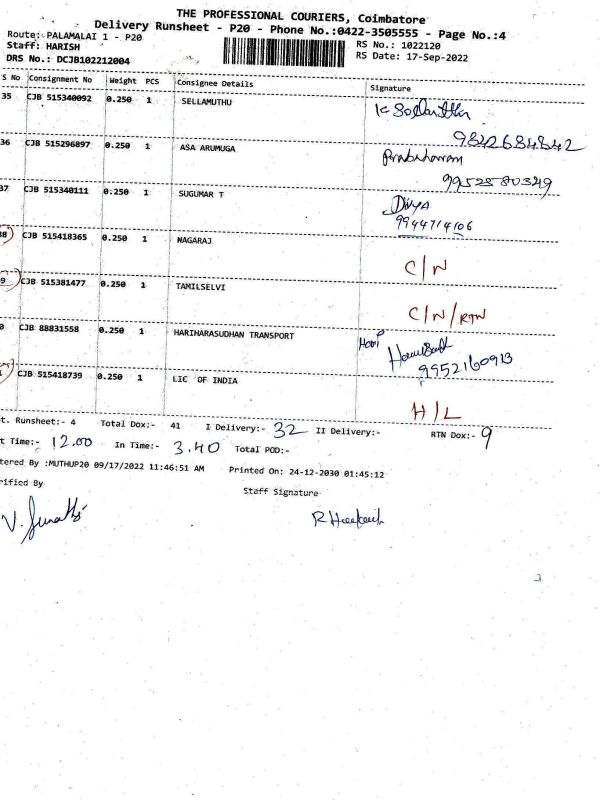 THE PROFESSIONAL COURIERS, Coimbatore
Delivery Runsheet - P20 - Phone No.:0422-3505555 - Page No.:4
Route: PALAMALAI 1 - P20
Staff: HARISH
RS No.: 1022120
DRS No.: DCJB102212004
RS Date: 17-Sep-2022
S No Consignment No Weight PCS Consignee Details Signature
35 CJB 515340092 0.250 1 SELLAMUTHU
9842684842
36 CJB 515296897 0.250 1 ASA ARUMUGA
37 CJB 515340111 0.250 1 SUGUMAR T Divya
9944714106
38 CJB 515418365 0.250 1 NAGARAJ C/N
9 CJB 515381477 0.250 1 TAMILSELVI C/N/RTN
0 CJB 88831558 0.250 1 HARIHARASUDHAN TRANSPORT Hari
9952160913
CJB 515418739 0.250 1 LIC OF INDIA H/L
t. Runsheet:- 4 Total Dox:- 41 I Delivery:- 32 II Delivery:- RTN Dox:- 9
t Time:- 12.00 In Time:- 3.40 Total POD:-
tered By :MUTHUP20 09/17/2022 11:46:51 AM Printed On: 24-12-2030 01:45:12
rified By Staff Signature